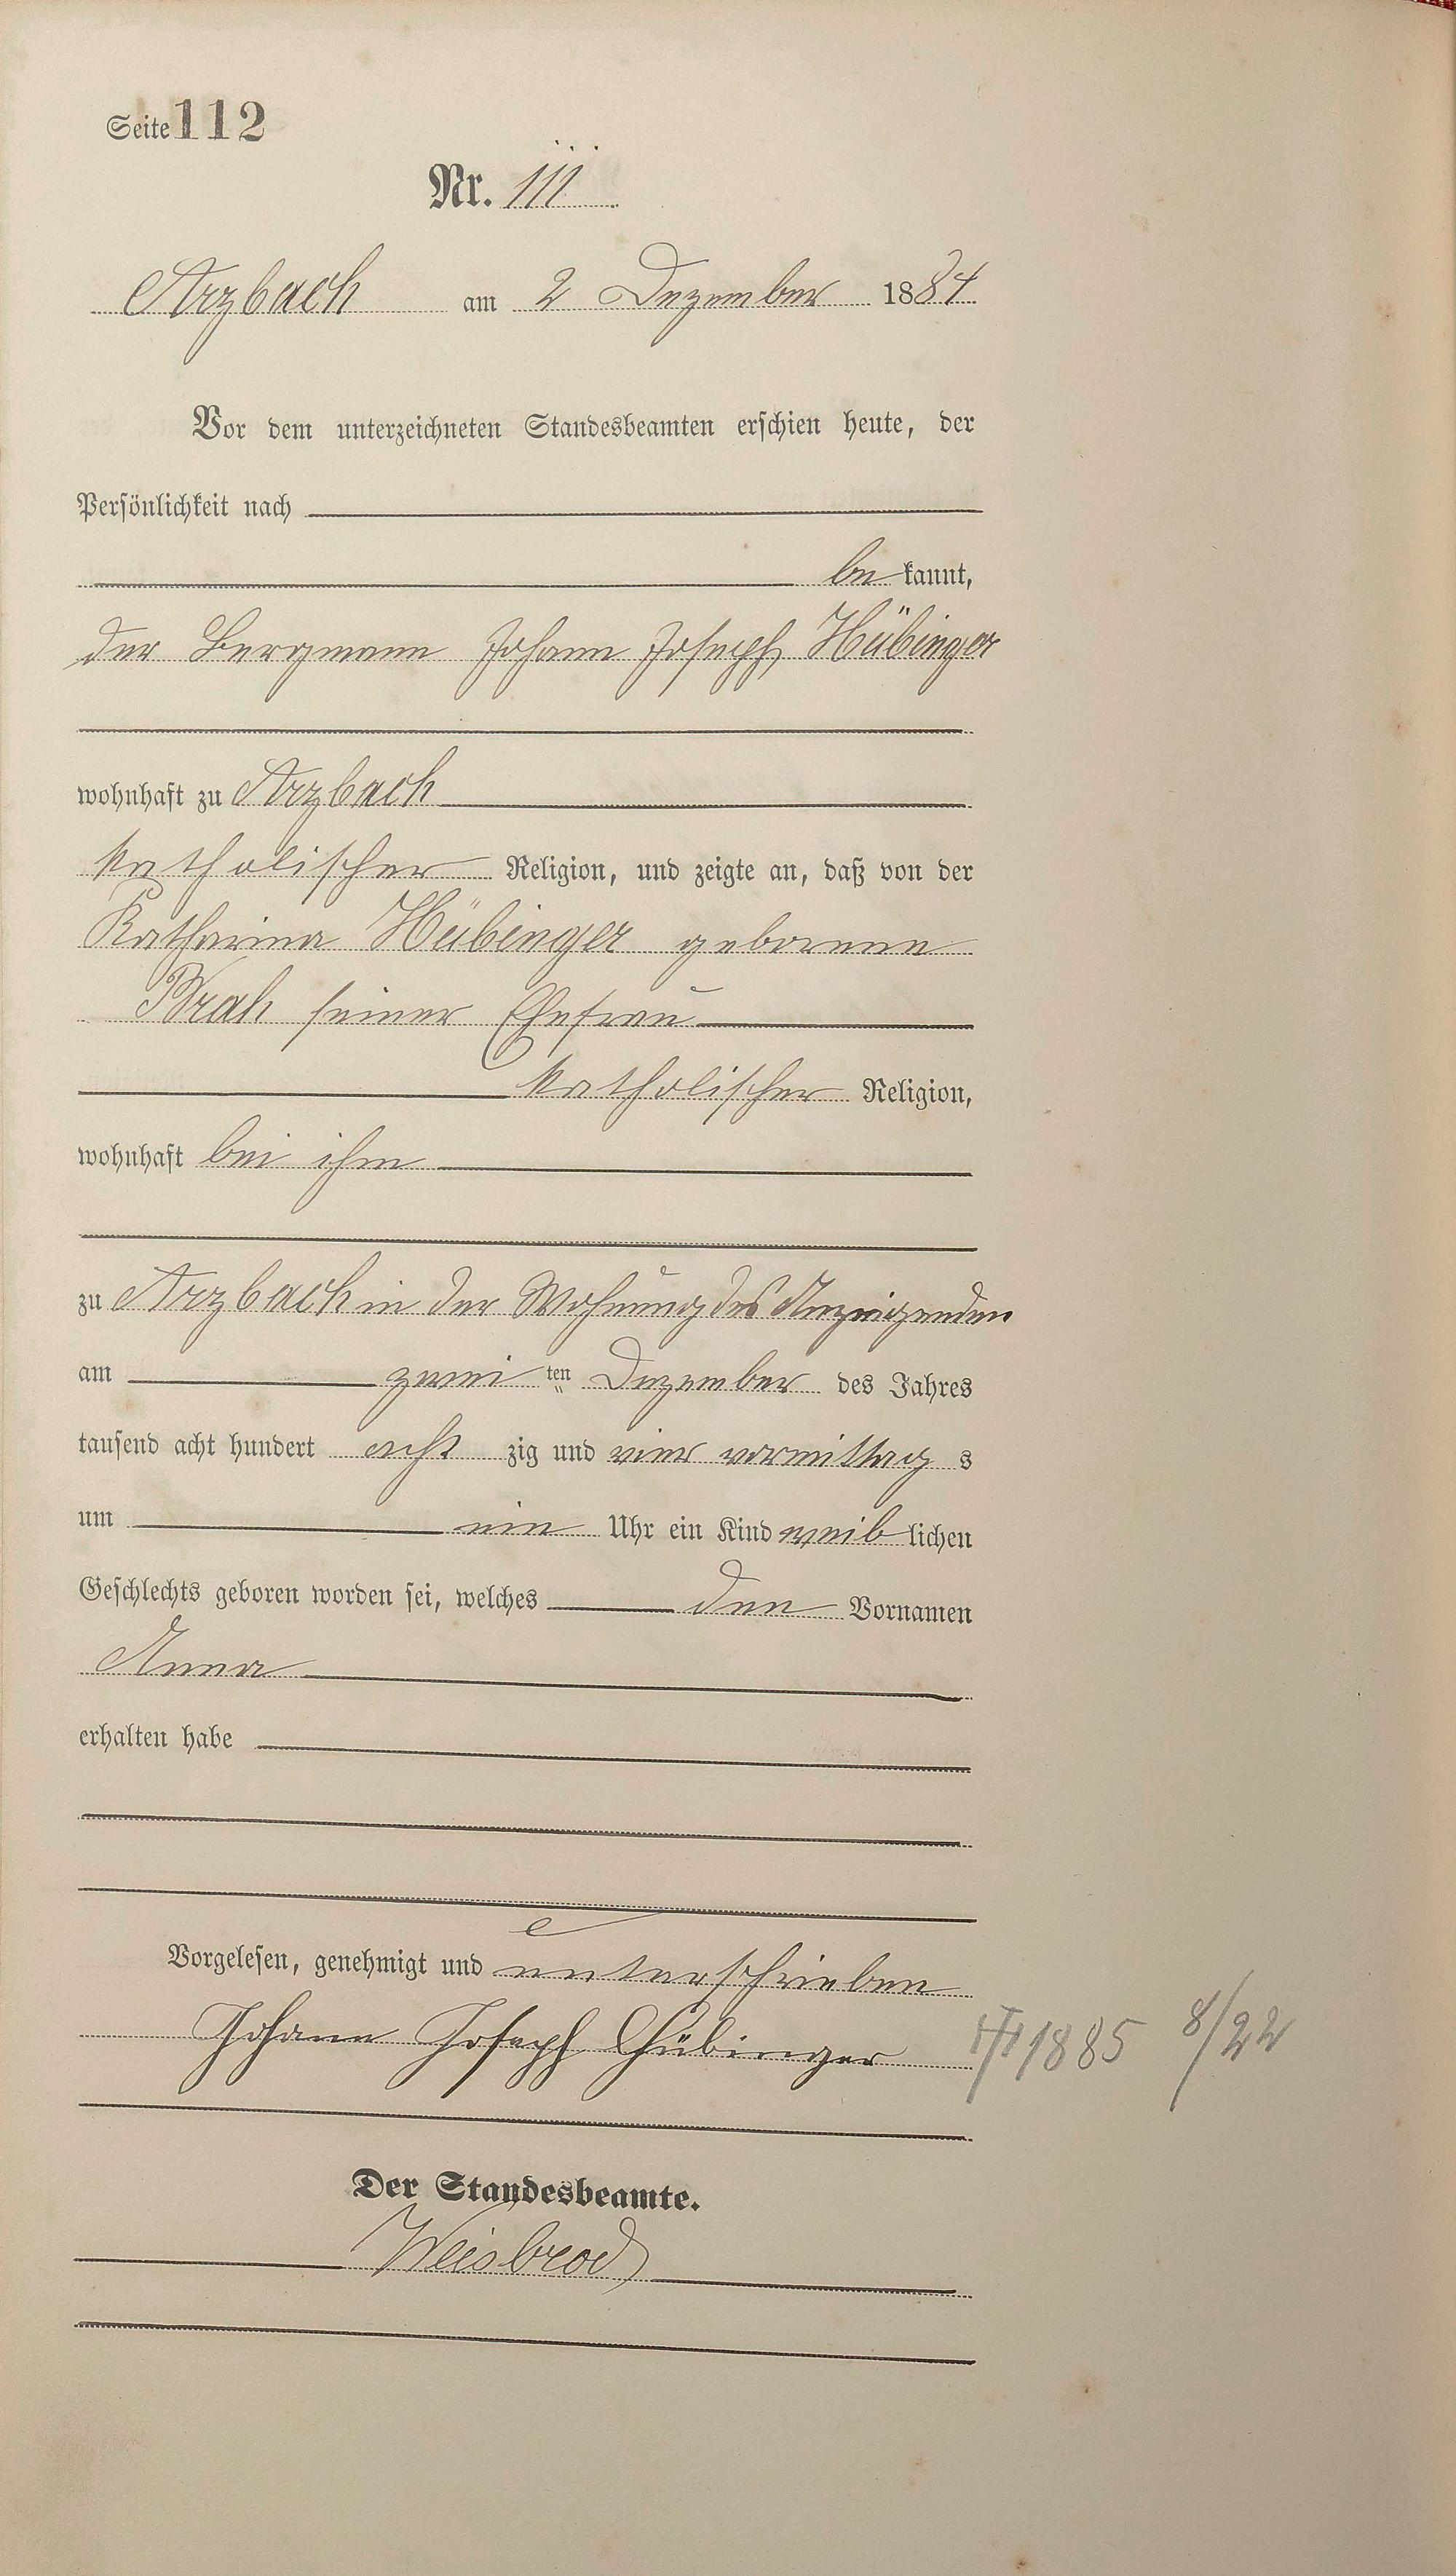 Seite 112
Nr. 111
Arzbach am 2 Dezember 1884
Vor dem unterzeichneten Standesbeamten erschien heute, der
Persönlichkeit nach
be kannt,
der Bergmann Johann Joseph Hübinger
wohnhaft zu Arzbach
katholischer Religion, und zeigte an, daß von der
Katharina Hübinger geborene
seiner Ehefrau
katholischer Religion,
wohnhaft bei ihm
zu Arzbach in der Wohnung des Anzeigenden
am zwei ten Dezember des Jahres
tausend acht hundert acht zig und vier vormittag s
um ein Uhr ein Kind weib lichen
Geschlechts geboren worden sei, welches den Vornamen
Anna
erhalten habe
Vorgelesen, genehmigt und unterschrieben
Johann Joseph Hübinger 1885 8/22
Der Standesbeamte.
Weisbrod